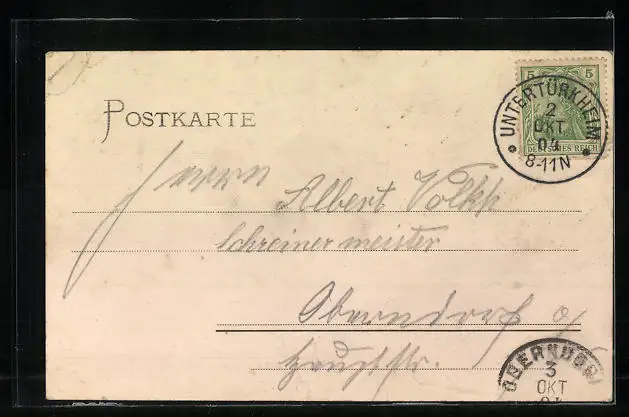 POSTKARTE
5 5
DEUTSCHES REICH
UNTERTÜRKHEIM
2
OKT
04
8-11N
Herrn
Albert
Schreinermeister
Oberndorf a/
Hauptstr.
OBERNDORF
3
OKT
04